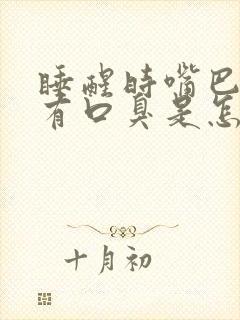 睡醒时嘴巴
有口臭是怎
十月初